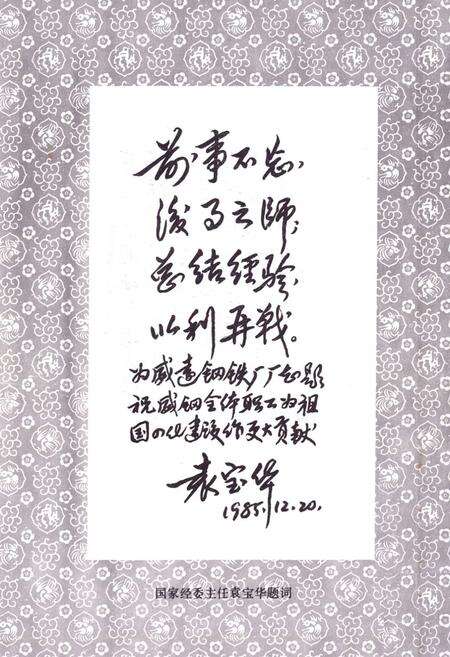 前事不忘,
后事之师;
总结经验,
以利再战。
为威远钢铁厂厂志题
祝威钢全体职工为祖
国四化建设作更大贡献
袁宝华
1985.12.20.
国家经委主任袁宝华题词